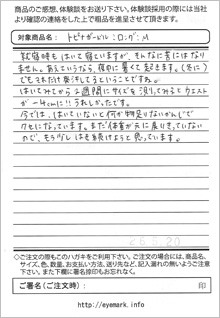 商品のご感想、体験談をお送り下さい。体験談採用の際には当社
より確認の連絡をした上で粗品を進呈させて頂きます。
対象商品名: トビナガードル:ロング:M
就寝時も はいて寝ていますが、そんなに苦にはなり
ません。あえていうなら、夜中に暑くて起きます。(冬に)
でもそれだけ発汗してるということですね。
はいてみてから2週間にサイズを測ってみるとウエストが
ー4cmに!!うれしかったです。
今では、はいていないと何か物足りないかんじで
クセになっています。まだ体重が元に戻りきっていない
ので、もうしばらくはき続けようと思っています。
26.5.20
◇ご注文の際もこのハガキをご利用下さい。ご注文の場合には、商品名、
サイズ、色、数量、お支払い方法、送り先など、記入漏れの無いようご注意
下さい。また下欄に署名捺印もお忘れなく。
ご署名(ご注文時): 印
http://eyemark.info